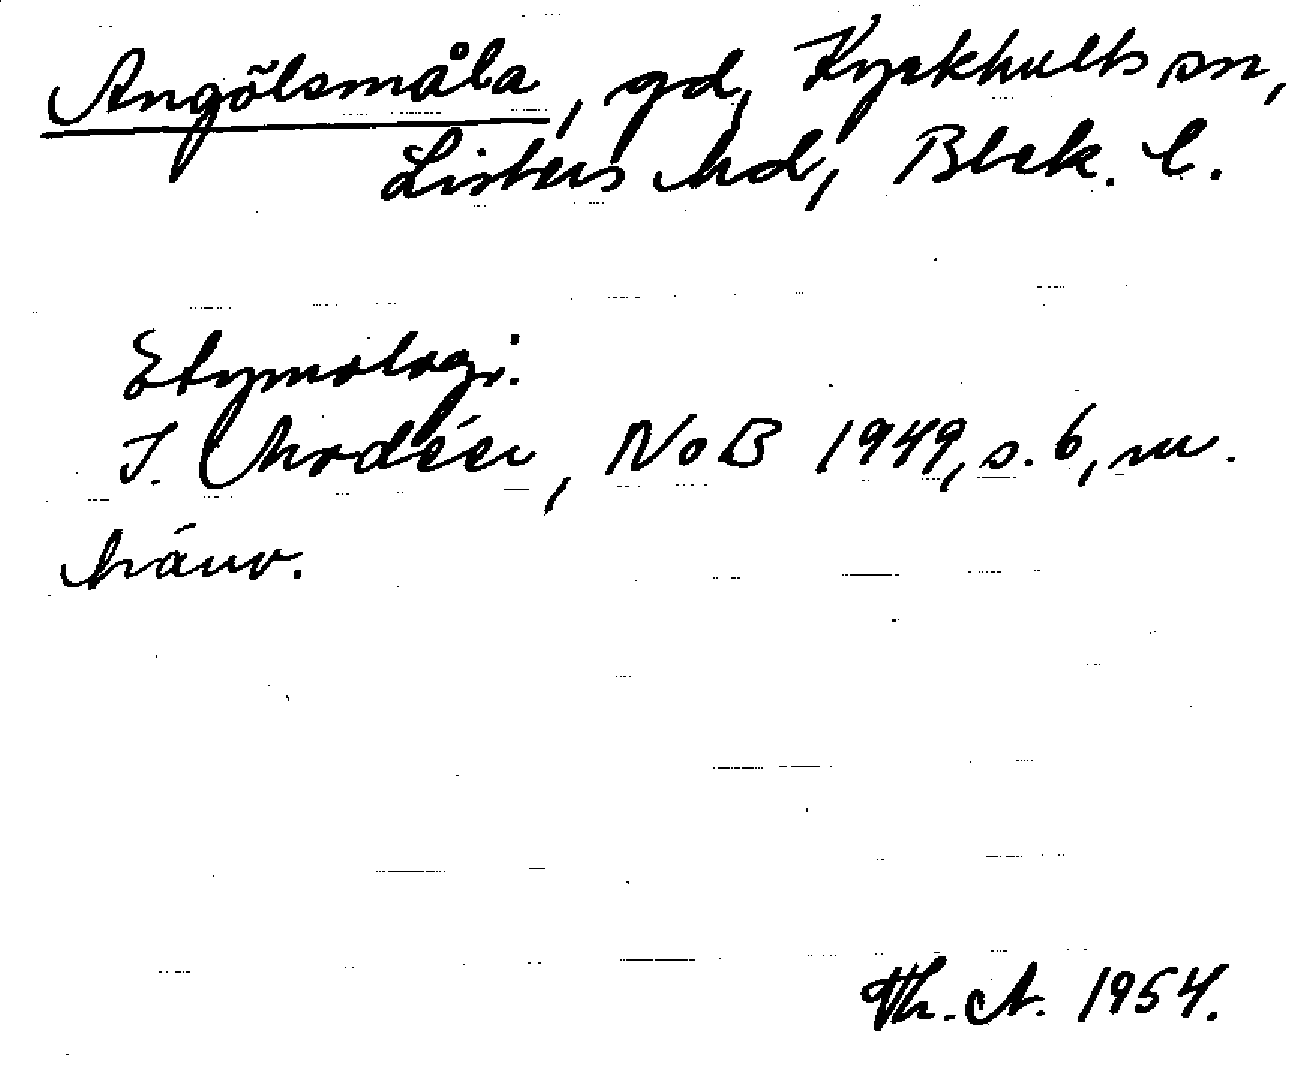 Angölsmåla, gd, Kyrkhults sn,
Listers hd, Blek. l.
Etymologi:
I. Modéer, NoB 1949, s. 6, m.
hänv.
Th. A. 1954.